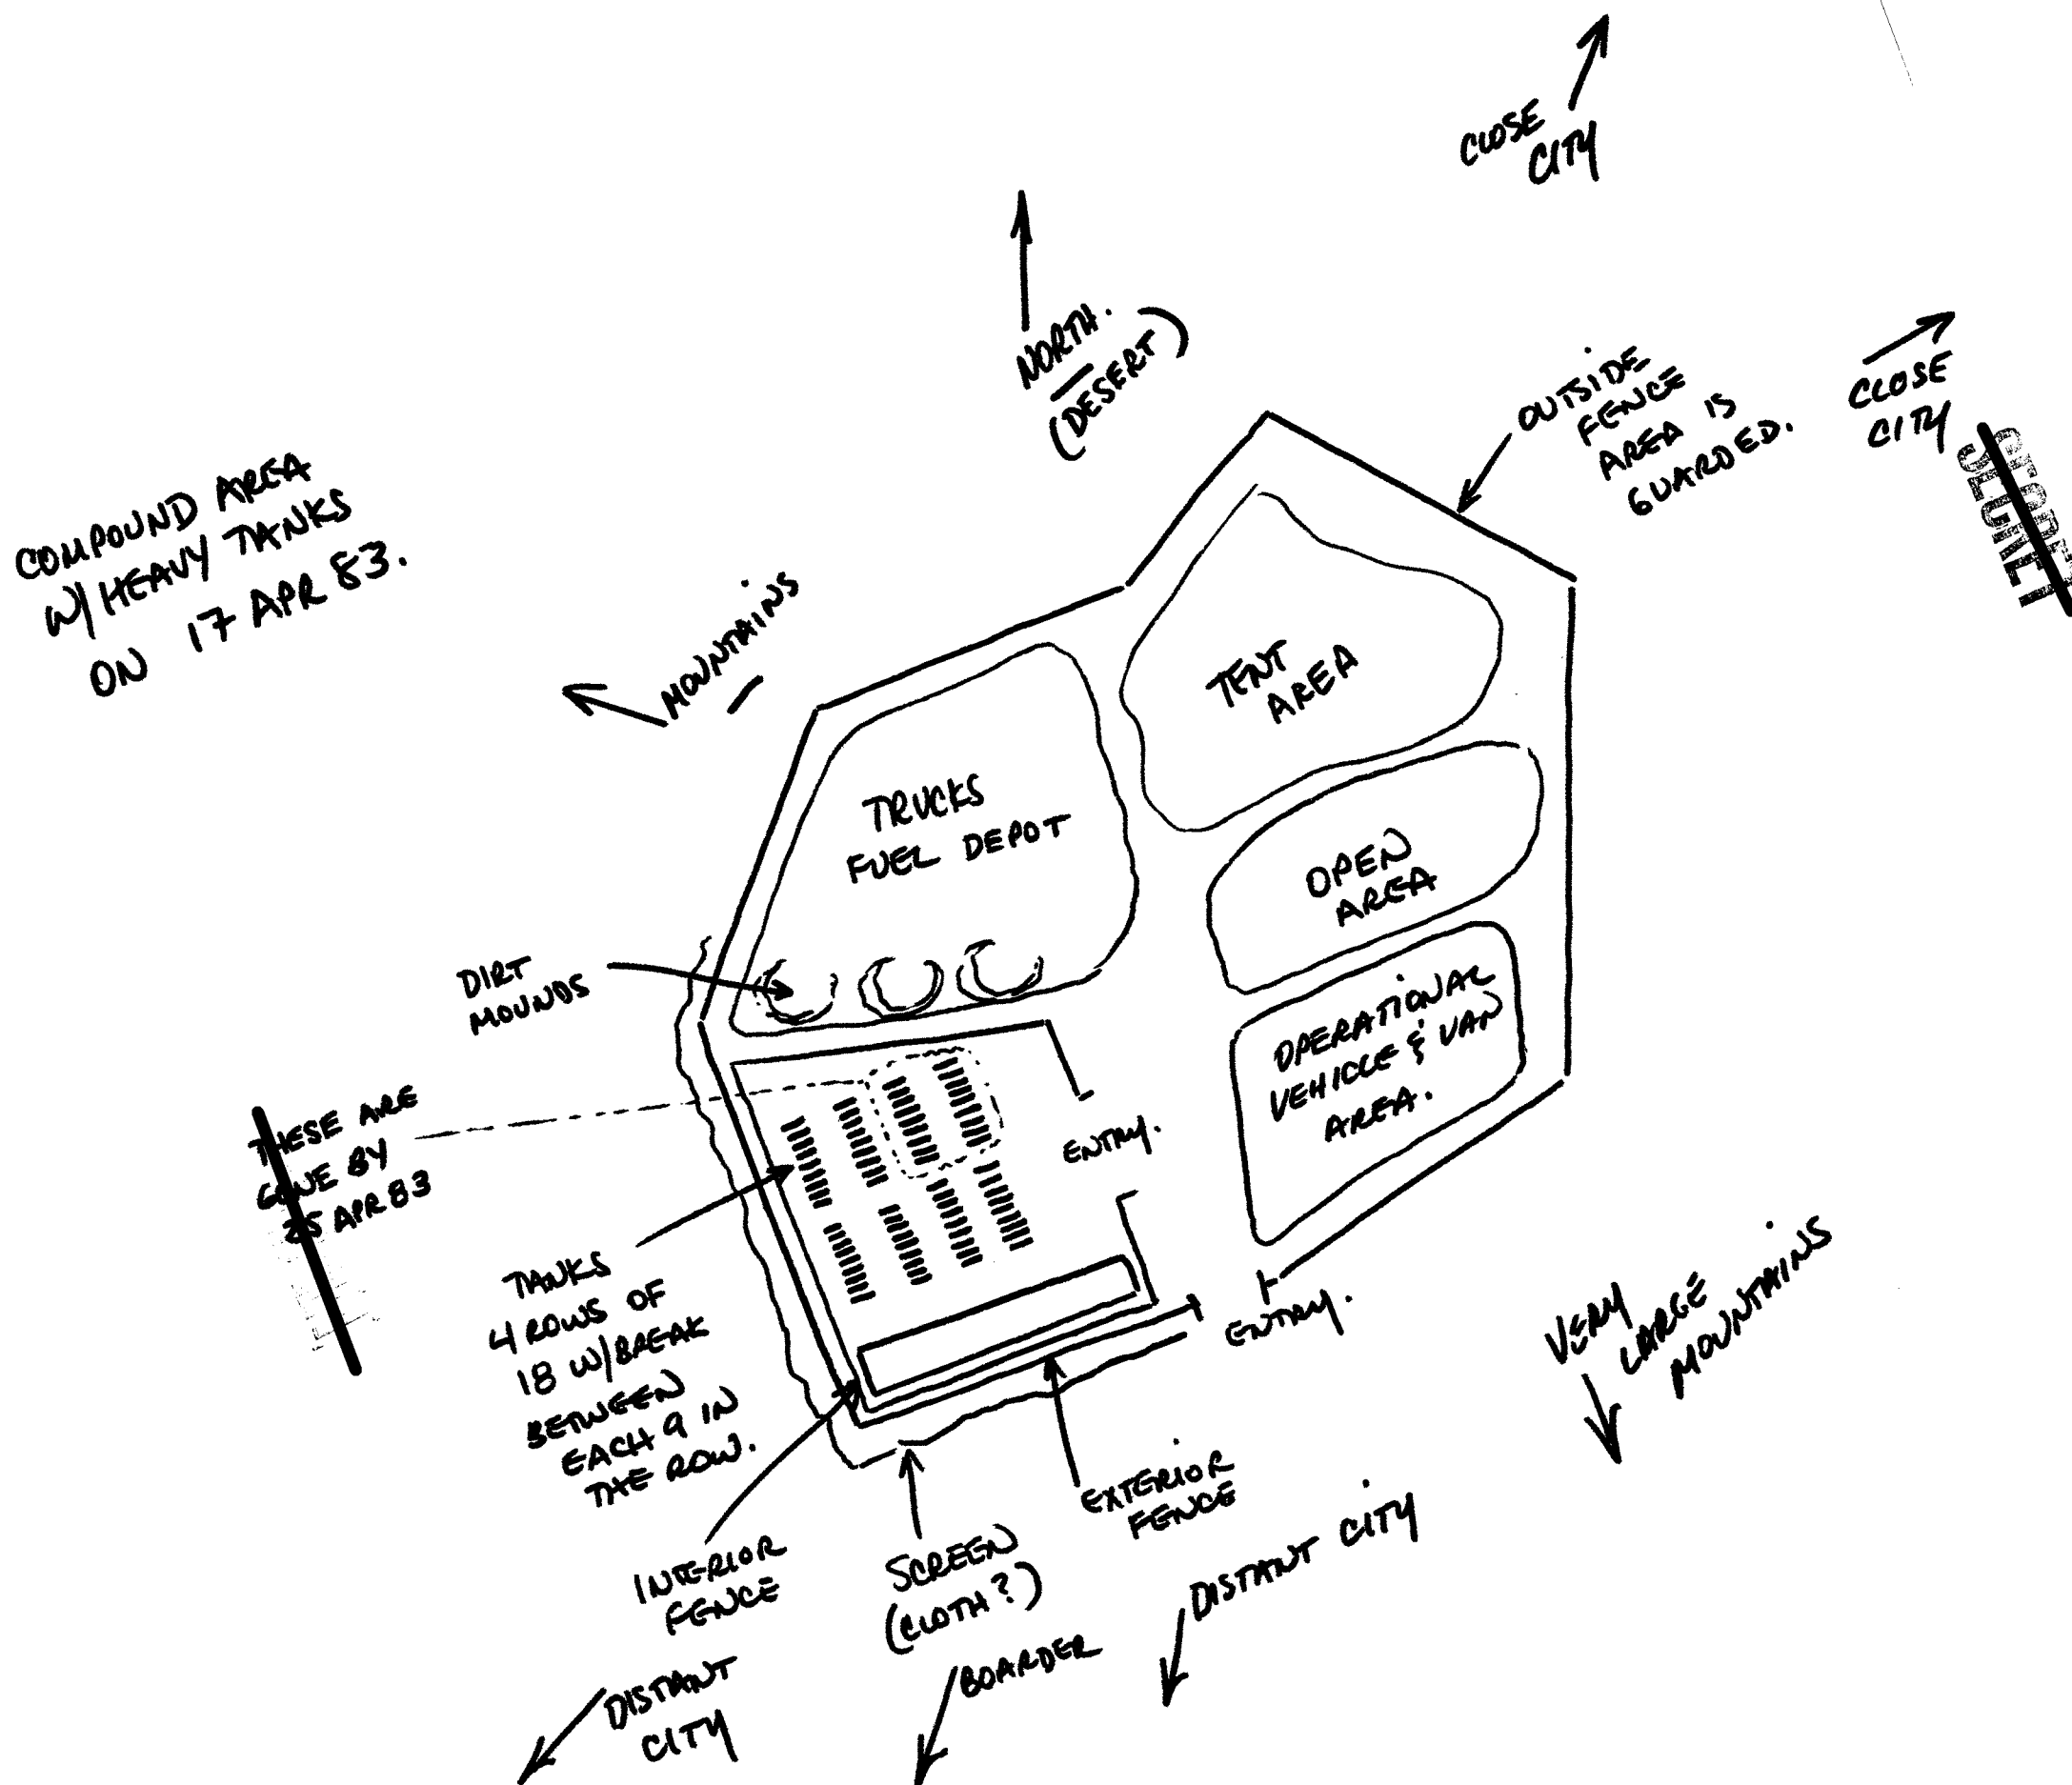 CLOSE
CITY
NORTH.
(DESERT)
CLOSE
CITY
OUTSIDE
FENCE
AREA IS
GUARDED.
SECRET
COMPOUND AREA
W/ HEAVY TANKS
ON 17 APR 83.
MOUNTAINS
TENT
AREA
TRUCKS
FUEL DEPOT
OPEN
AREA
DIRT
MOUNDS
OPERATIONAL
VEHICLE & VAN
AREA.
THESE ARE
GONE BY
25 APR 83
ENTRY.
TANKS
4 ROWS OF
18 W/ BREAK
BETWEEN
EACH 9 IN
THE ROW.
ENTRY.
VERY
LARGE
MOUNTAINS
INTERIOR
FENCE
SCREEN
(CLOTH?)
EXTERIOR
FENCE
DISTANT CITY
DISTANT
CITY
BOARDER